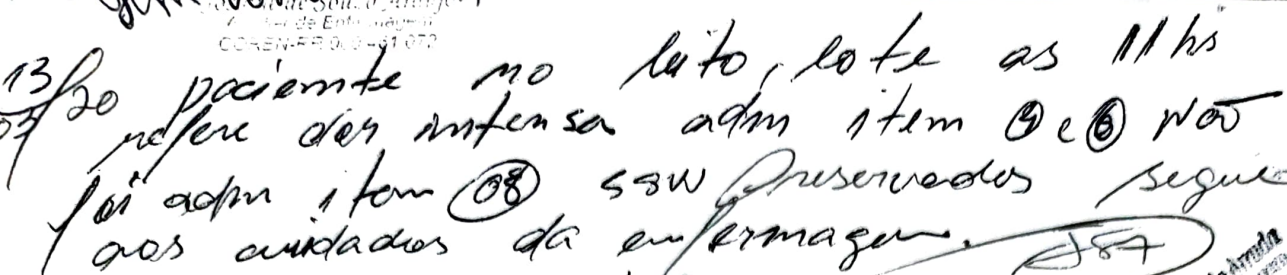 de Enfermagem
COREN-RR 000.461.072
13/07/20 paciente no leito, lote as 11hs
refere dor intensa adm item 9 e 6 Não
foi adm item 08 SSVV Preservados segue
aos cuidados da enfermagem.